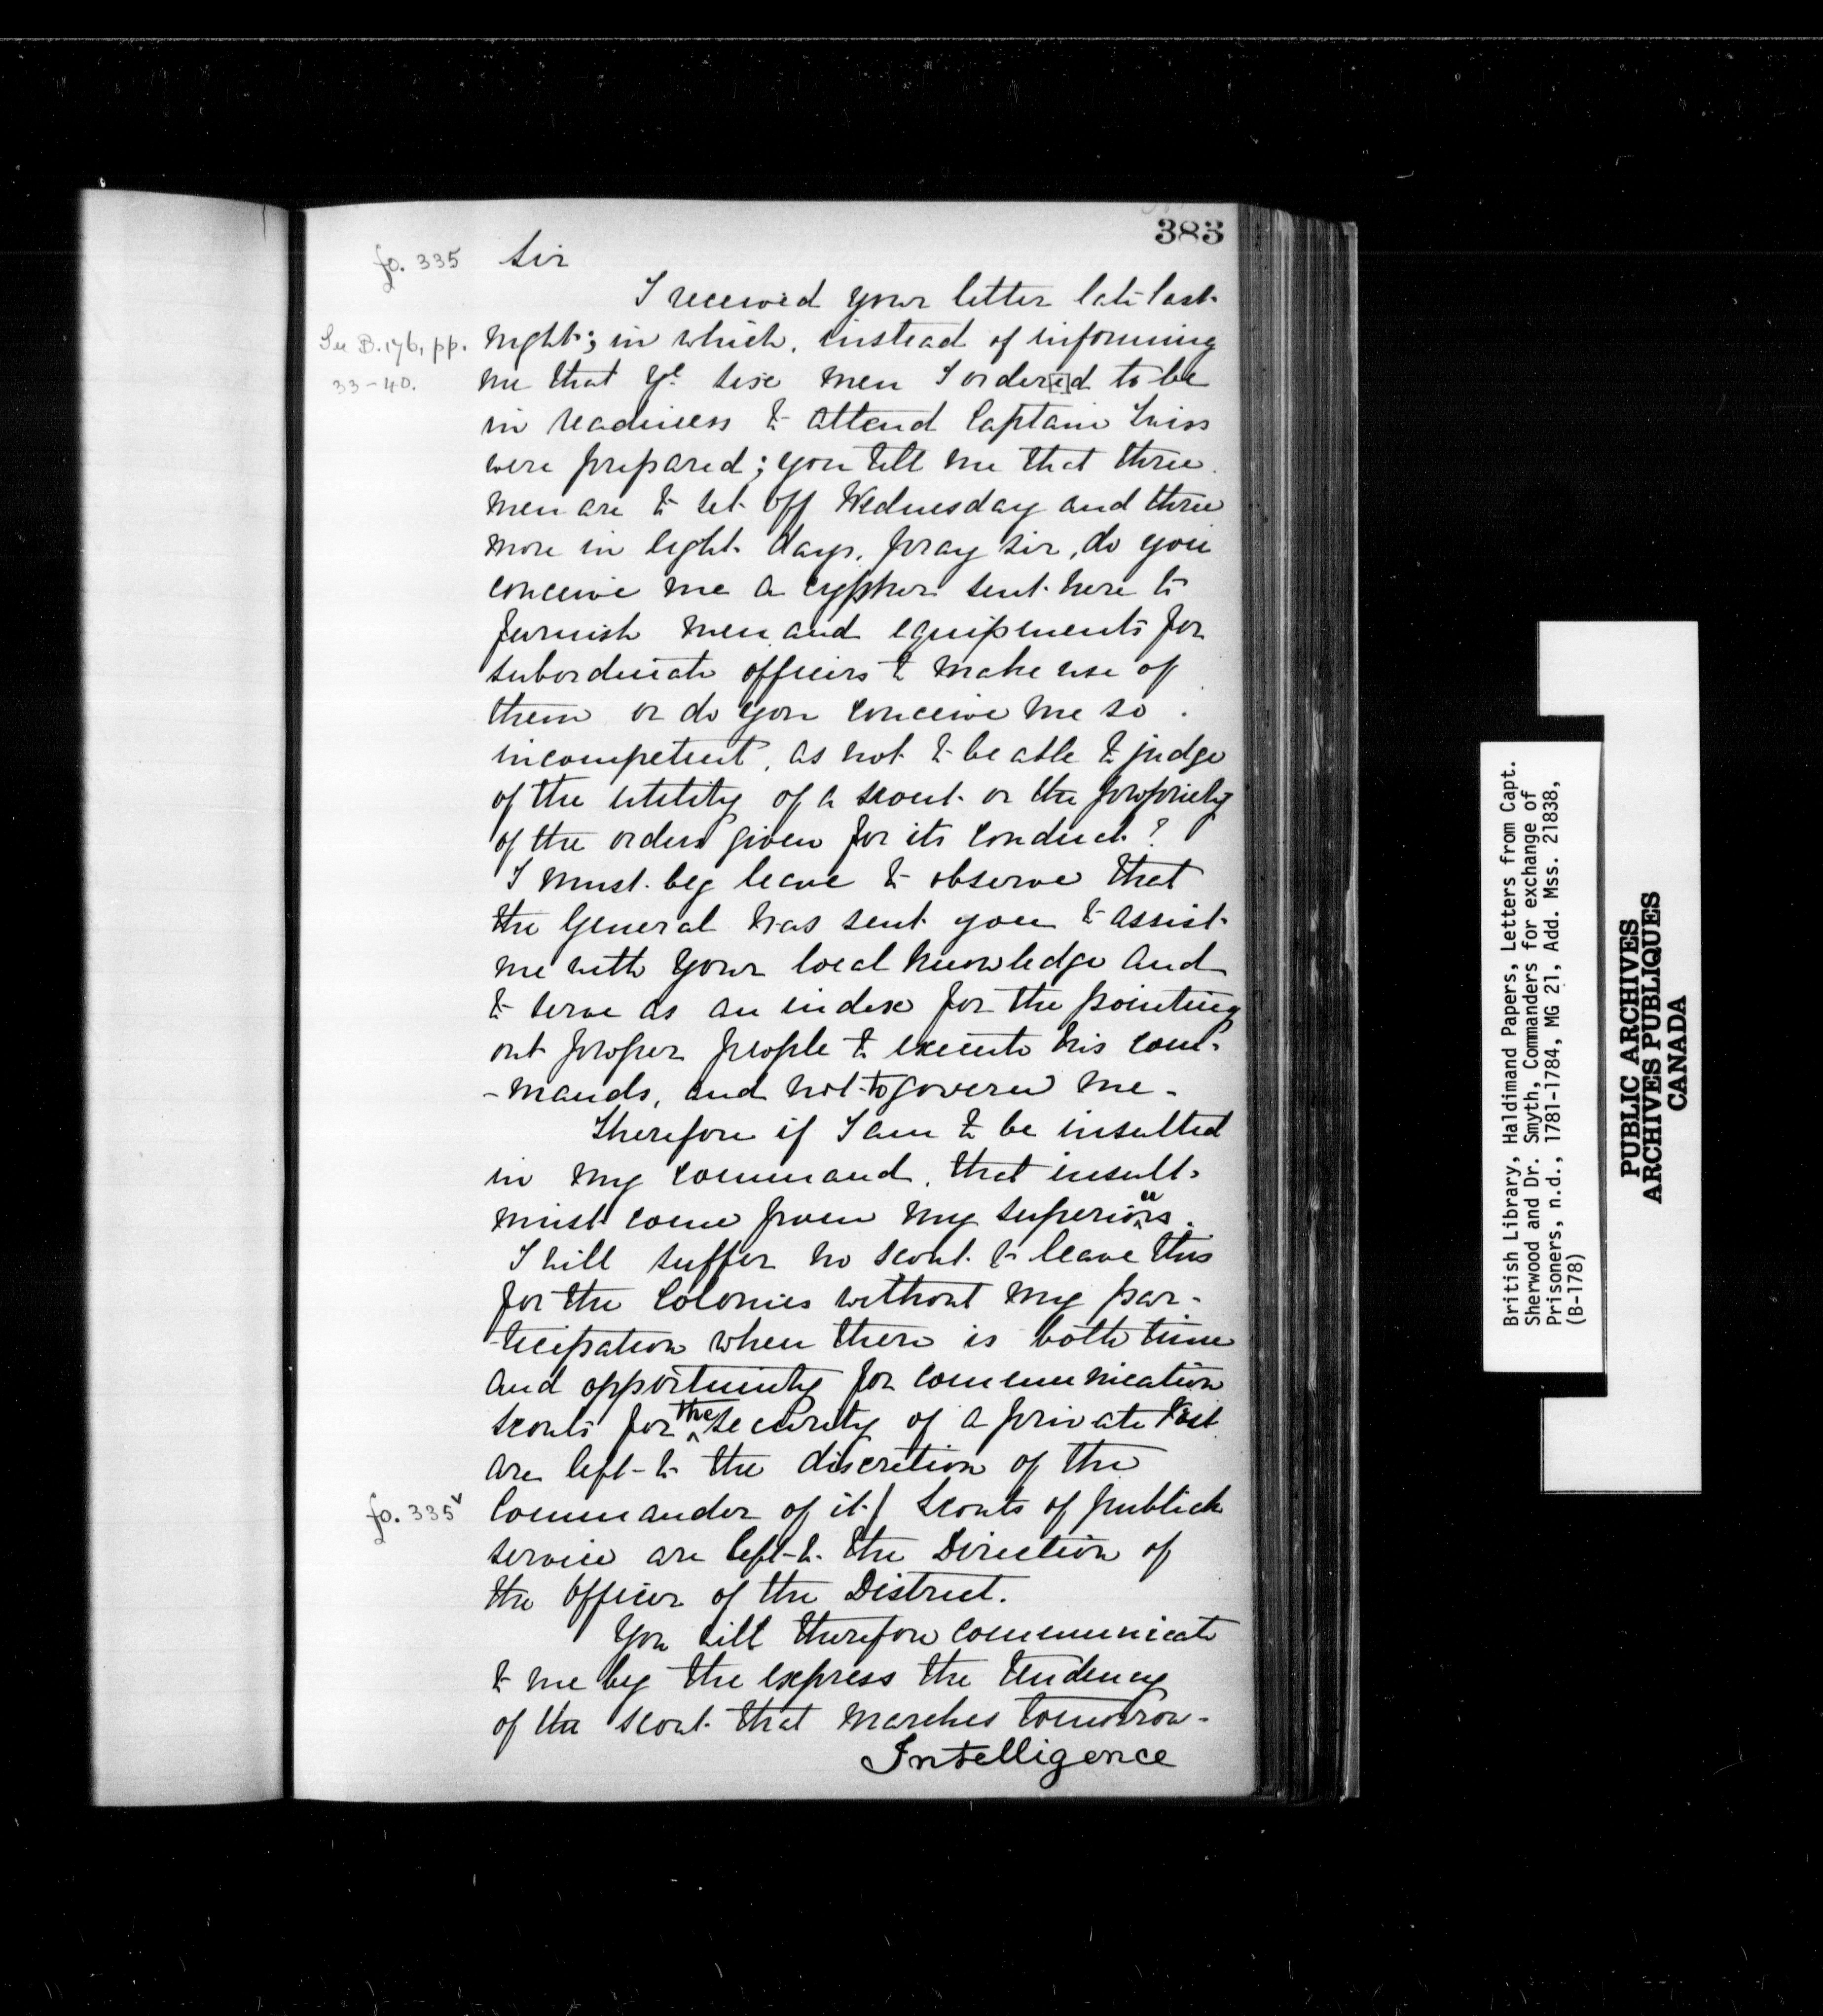 383
fo. 335
Sir
I received your letter late last
See B. 176, pp.
33-40.
night; in which, instead of informing
me that ye six men I ordered to be
in readiness to attend Captain Twiss
were prepared; you tell me that three
men are to set off Wednesday and three
more in eight days, pray sir, do you
conceive me a cypher sent here to
furnish men and equipments for
subordinate officers to make use of
them or do you conceive me so
incompetent, as not to be able to judge
of the utility of a scout or the propriety
of the orders given for its conduct?
I must beg leave to observe that
the General has sent you to assist
me with your local knowledge and
to serve as an index for the pointing
out proper people to execute his com-
-mands, and not to govern me-
Therefore if I am to be insulted
in my command, that insult
must come from my superiours.
I will suffer no scout to leave this
for the Colonies without my par-
-ticipation when there is both time
and opportunity for communication
scouts for the security of a private Post
are left to the discretion of the
fo. 335v
Commander of it/ Scouts of publick
service are left to the Direction of
the Officer of the District.
You will therefore communicate
to me by the express the tendency
of the scout that marches tomorrow-
Intelligence
British Library, Haldimand Papers, Letters from Capt.
Sherwood and Dr. Smyth, Commanders for exchange of
Prisoners, n.d., 1781-1784, MG 21, Add. Mss. 21838,
(B-178)
PUBLIC ARCHIVES
ARCHIVES PUBLIQUES
CANADA